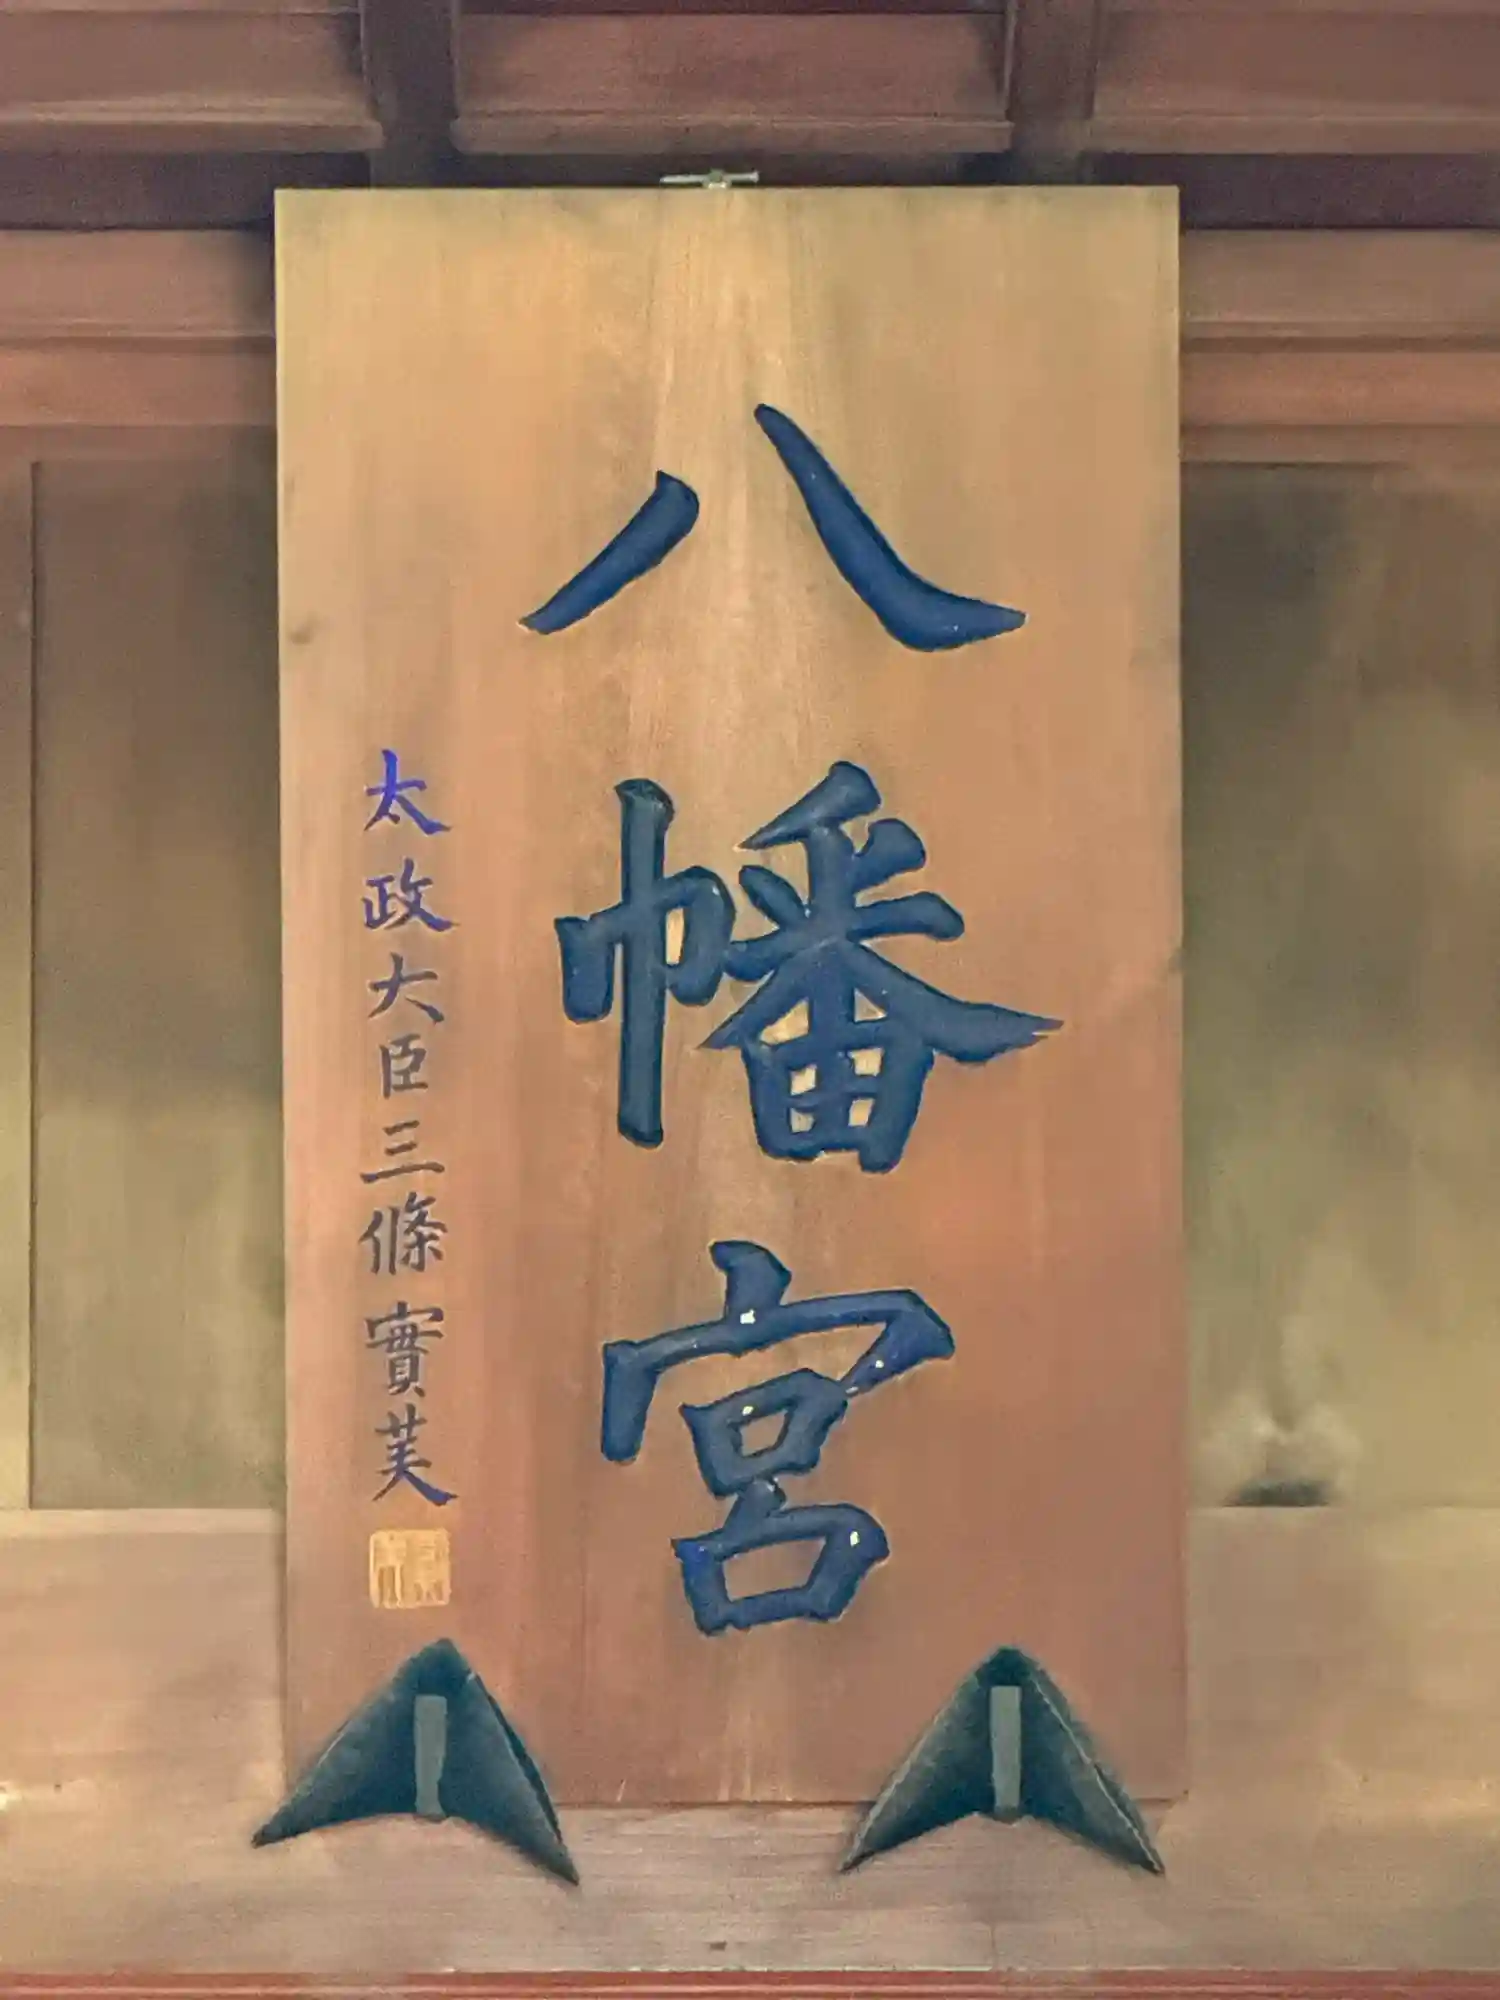 八幡宮
太政大臣三條實美